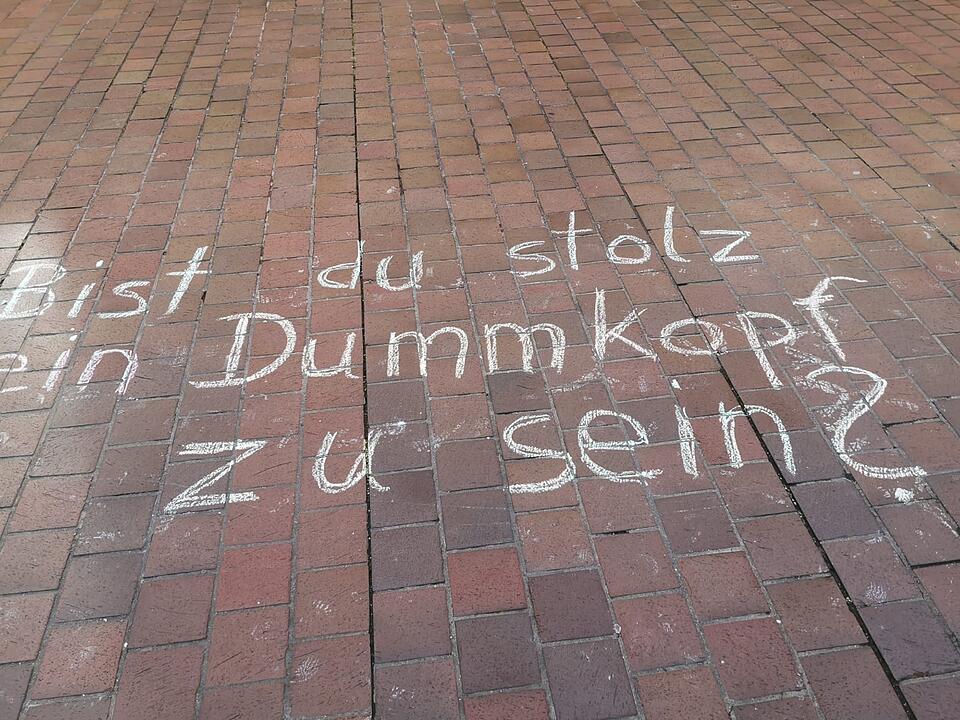 Bist du stolz
ein Dummkopf
zu sein?